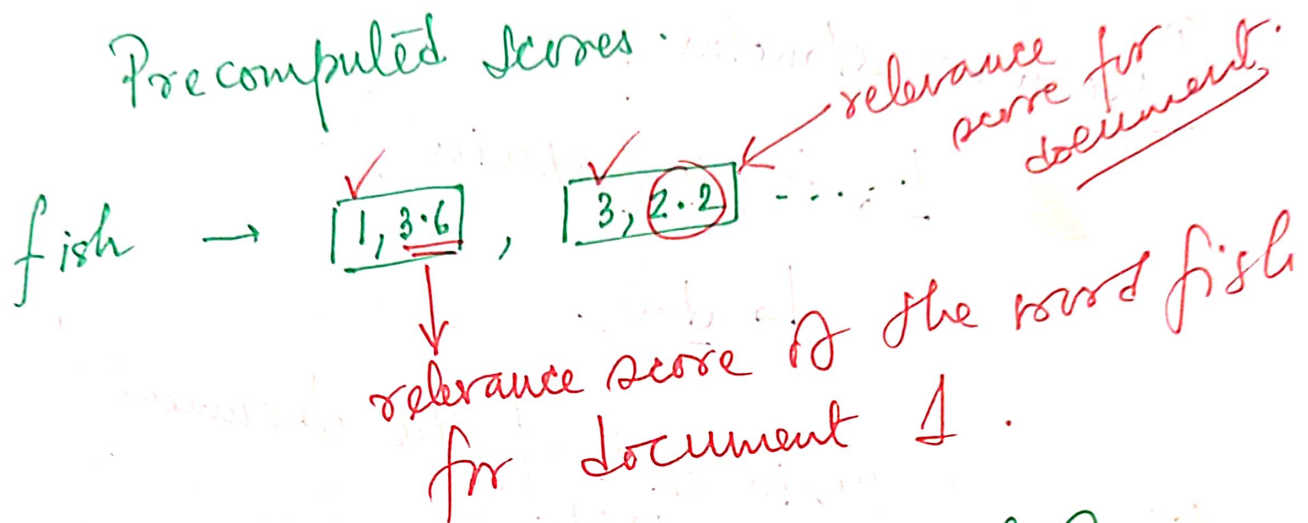 Precomputed scores.
relevance
score for
document.
fish → 1, 3.6 , 3, 2.2 .....
relevance score of the word fish
for document 1.